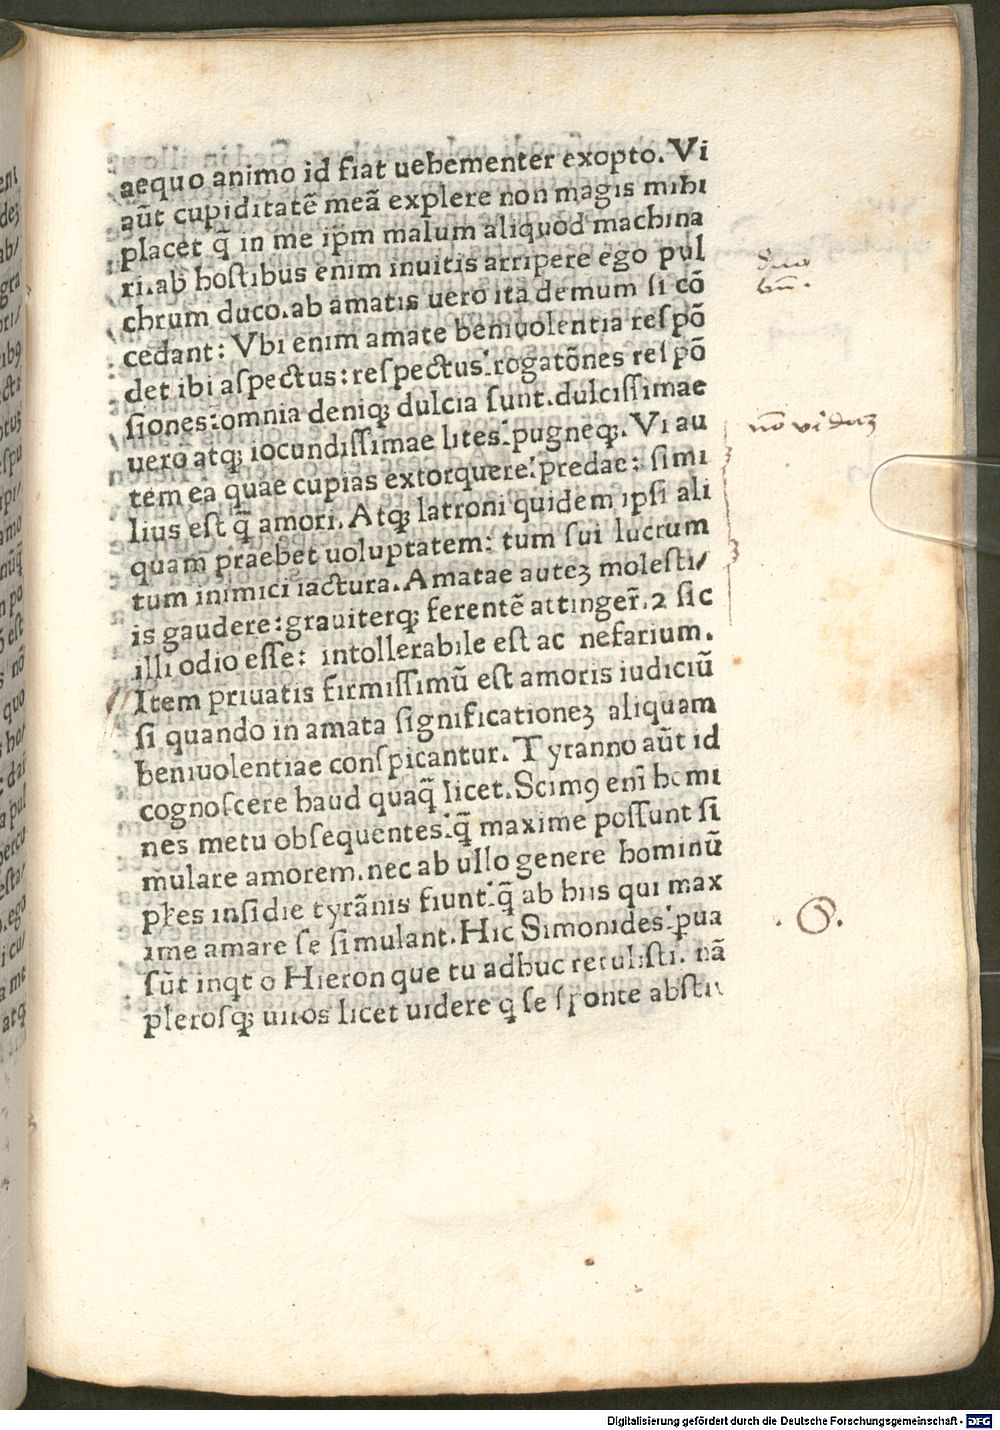 aequo animo id fiat uehementer exopto. Vi
aūt cupiditatē meā explere non magis mihi
placet q̄ in me ip̄m malum aliquod machina
ri. ab hostibus enim inuitis arripere ego pul
chrum duco. ab amatis uero ita demum si cō
cedant: Vbi enim amate beniuolentia respō
det ibi aspectus: respectus: rogatōnes respō
siones: omnia deniqꝫ dulcia sunt. dulcissimae
uero atqꝫ iocundissimae lites: pugneqꝫ. Vi au
tem ea quae cupias extorquere: predae: simi
lius est q̄ amori. Atqꝫ latroni quidem ipsi ali
quam praebet uoluptatem: tum sui lucrum
tum inimici iactura. Amatae auteꝫ molesti/
is gaudere: grauiterqꝫ ferentē attinger̄. ⁊ sic
illi odio esse: intollerabile est ac nefarium.
Item priuatis firmissimū est amoris iudiciū
si quando in amata significationeꝫ aliquam
beniuolentiae conspicantur. Tyranno aūt id
cognoscere haud quaq̄ licet. Scimꝰ enī homi
nes metu obsequentes: q̄ maxime possunt si
mulare amorem. nec ab ullo genere hominū
pl̄es insidie tyrānis fiunt: q̄ ab hiis qui max
ime amare se simulant. Hic Simonides: ꝑua
sūt inqt o Hieron que tu adhuc retulisti. nā
plerosqꝫ uiros licet uidere q se sponte absti
Digitalisierung gefördert durch die Deutsche Forschungsgemeinschaft - DFG